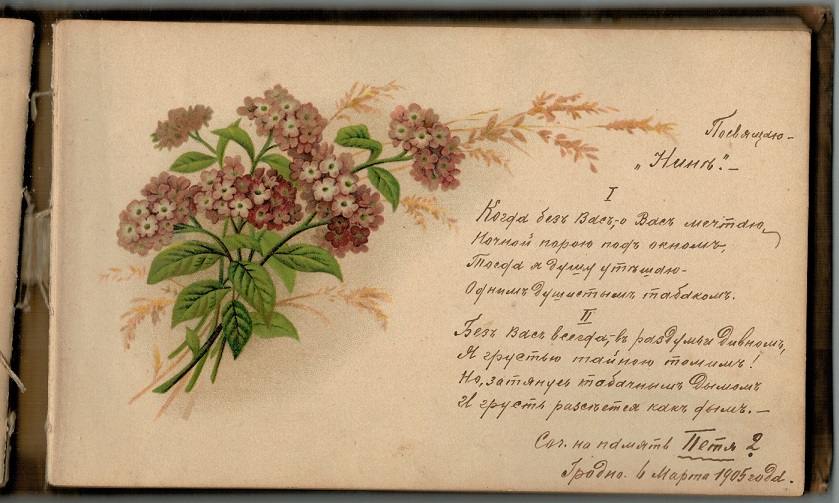 Посвящаю-
„Нинѣ".-
I
Когда безъ Васъ,-о Васъ мечтаю,
Ночной порою подъ окномъ,
Тогда я душу утѣшаю-
Однимъ душистымъ табакомъ.
II
Безъ Васъ всегда,-въ раздумьи дивномъ,
Я грустью тайною томимъ!
Но, затянусь табачнымъ дымомъ
И грусть разсѣется какъ дымъ.-
Соч. на память Петя ?
Гродно. 6 Марта 1905 года.